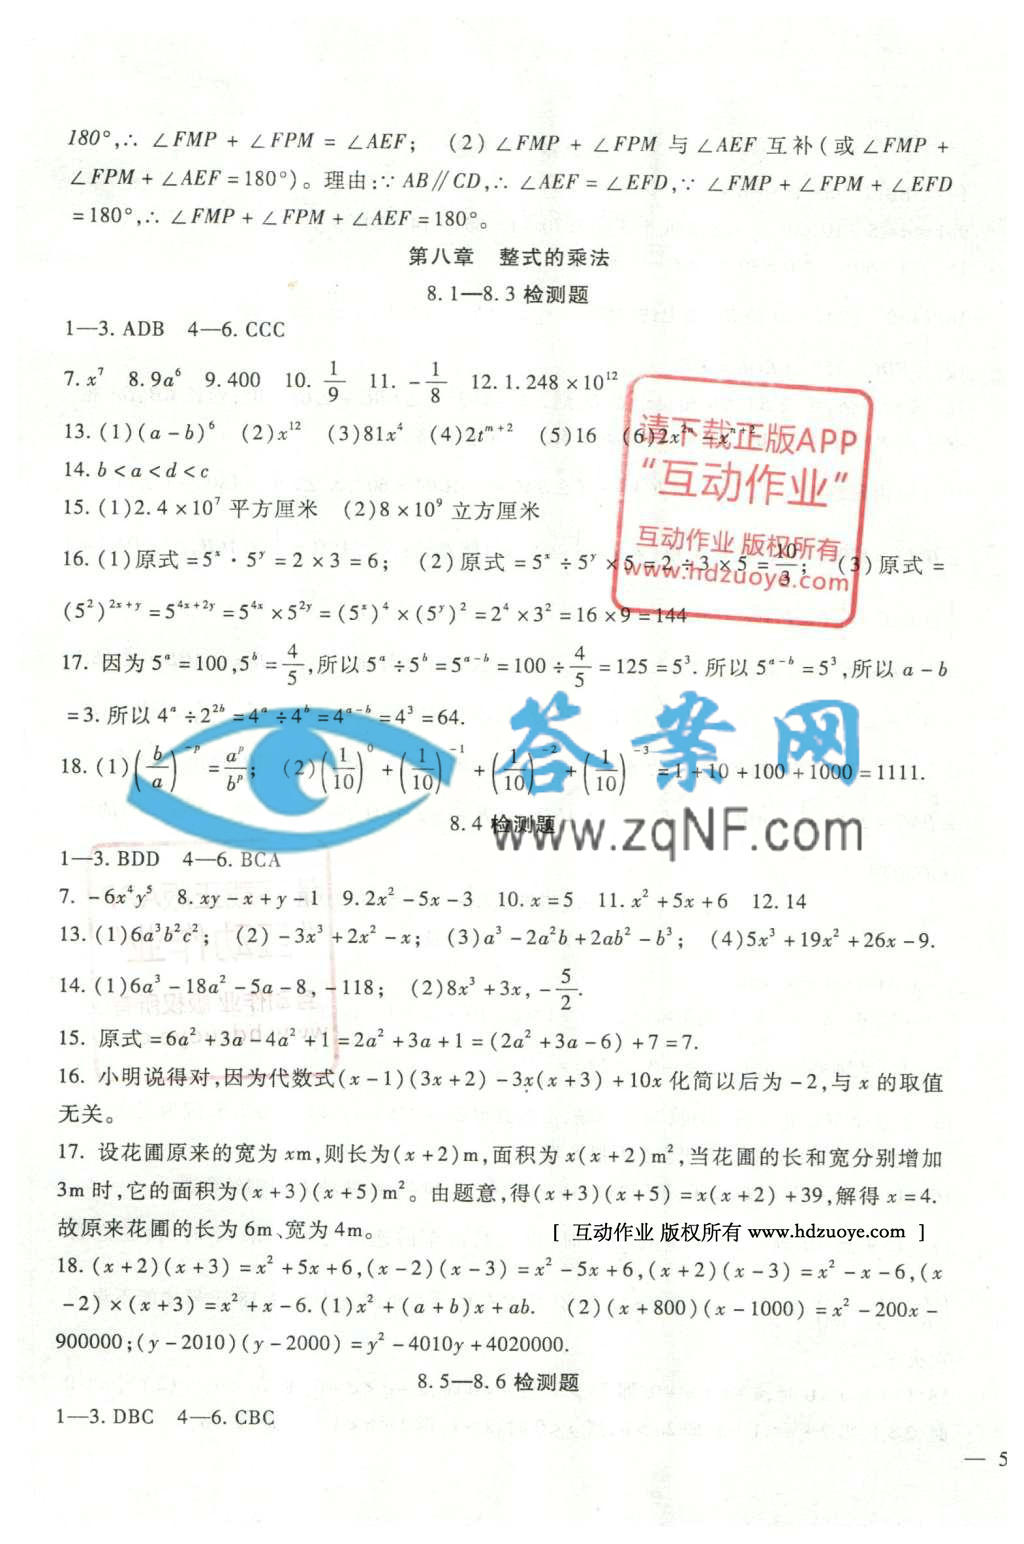 180°,∴ ∠FMP + ∠FPM = ∠AEF; (2) ∠FMP + ∠FPM 与 ∠AEF 互补(或 ∠FMP +
∠FPM + ∠AEF = 180°)。理由:∵ AB∥CD,∴ ∠AEF = ∠EFD,∵ ∠FMP + ∠FPM + ∠EFD
= 180°,∴ ∠FMP + ∠FPM + ∠AEF = 180°。
第八章 整式的乘法
8.1—8.3 检测题
1—3. ADB 4—6. CCC
7. x⁷ 8. 9a⁶ 9. 400 10. 1/9 11. -1/8 12. 1.248×10¹²
13. (1)(a-b)⁶ (2)x¹² (3)81x⁴ (4)2t^(m+2) (5)16 (6)2x^(2n)-x^(n+2)
14. b<a<d<c
15. (1)2.4×10⁷ 平方厘米 (2)8×10⁹ 立方厘米
16. (1)原式=5^x·5^y=2×3=6; (2)原式=5^x÷5^y×5=2÷3×5=10/3; (3)原式=
(5²)^(2x+y)=5^(4x+2y)=5^(4x)×5^(2y)=(5^x)⁴×(5^y)²=2⁴×3²=16×9=144
17. 因为5^a=100,5^b=4/5,所以5^a÷5^b=5^(a-b)=100÷4/5=125=5³.所以5^(a-b)=5³,所以a-b
=3.所以4^a÷2^(2b)=4^a÷4^b=4^(a-b)=4³=64.
18. (1)(b/a)^(-p)=a^p/b^p; (2)(1/10)^0+(1/10)^(-1)+(1/10)^(-2)+(1/10)^(-3)=1+10+100+1000=1111.
8.4 检测题
1—3. BDD 4—6. BCA
7. -6x⁴y⁵ 8. xy-x+y-1 9. 2x²-5x-3 10. x=5 11. x²+5x+6 12. 14
13. (1)6a³b²c²; (2)-3x³+2x²-x; (3)a³-2a²b+2ab²-b³; (4)5x³+19x²+26x-9.
14. (1)6a³-18a²-5a-8,-118; (2)8x³+3x,-5/2.
15. 原式=6a²+3a-4a²+1=2a²+3a+1=(2a²+3a-6)+7=7.
16. 小明说得对,因为代数式(x-1)(3x+2)-3x(x+3)+10x化简以后为-2,与x的取值
无关。
17. 设花圃原来的宽为xm,则长为(x+2)m,面积为x(x+2)m²,当花圃的长和宽分别增加
3m时,它的面积为(x+3)(x+5)m²。由题意,得(x+3)(x+5)=x(x+2)+39,解得x=4.
故原来花圃的长为6m、宽为4m。 [ 互动作业 版权所有 www.hdzuoye.com ]
18. (x+2)(x+3)=x²+5x+6,(x-2)(x-3)=x²-5x+6,(x+2)(x-3)=x²-x-6,(x
-2)×(x+3)=x²+x-6.(1)x²+(a+b)x+ab. (2)(x+800)(x-1000)=x²-200x-
900000;(y-2010)(y-2000)=y²-4010y+4020000.
8.5—8.6 检测题
1—3. DBC 4—6. CBC
— 5
请下载正版APP
“互动作业”
互动作业 版权所有
www.hdzuoye.com
答案网
www.zqNF.com